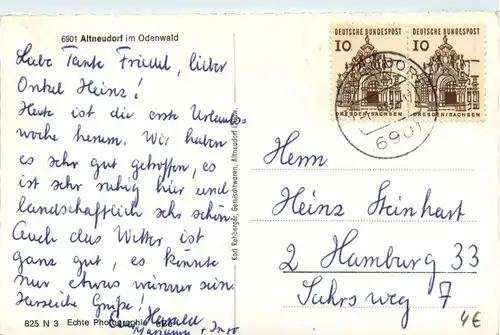 6901 Altneudorf im Odenwald
Liebe Tante Friedel, lieber
Onkel Heinz!
Heute ist die erste Urlaubs-
woche herum. Wir haben
es sehr gut getroffen, es
ist sehr ruhig hier und
landschaftlich sehr schön.
Auch das Wetter ist
ganz gut, es könnte
nur etwas wärmer sein.
Herzliche Grüße!
Eure Harald
Marianne +
825 N 3 Echte Photographie
Karl Rehberger, Gemischtwaren, Altneudorf
DEUTSCHE BUNDESPOST
10
DRESDEN/SACHSEN
DEUTSCHE BUNDESPOST
10
DRESDEN/SACHSEN
6901
Herrn
Heinz Steinhart
2 Hamburg 33
Suhrsweg 7
4€